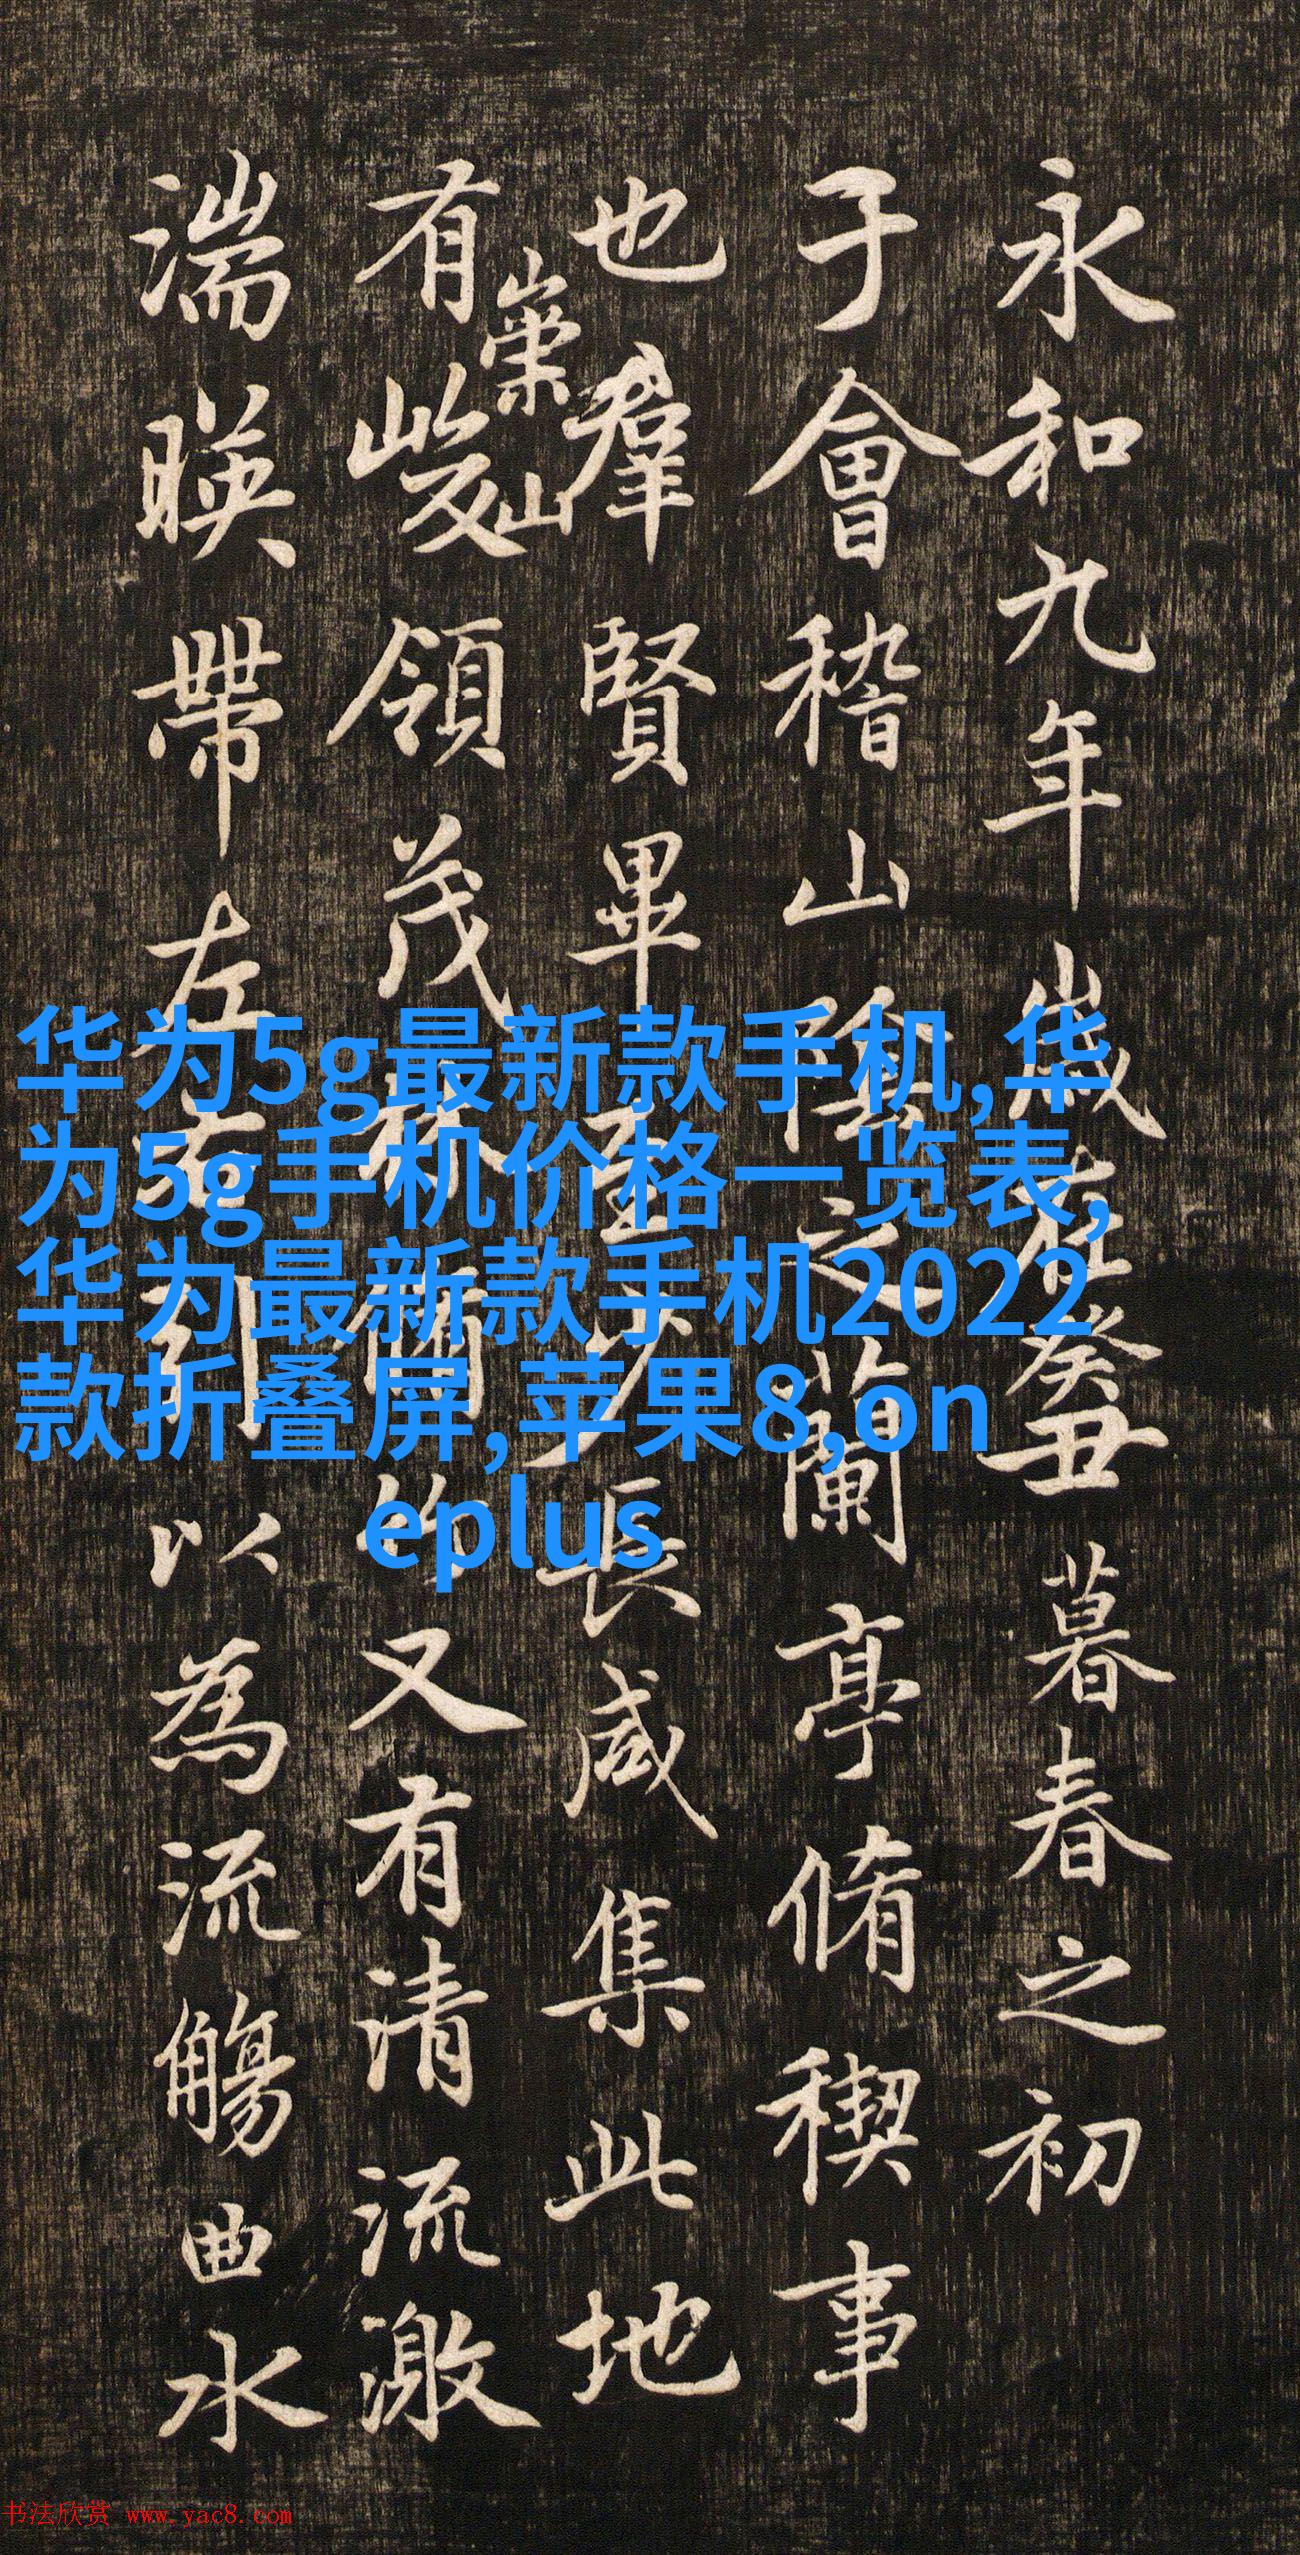 永和九年歲在癸丑暮春之初
于會稽山陰之蘭亭脩稧事
也羣賢畢至少長咸集此地
有崇山峻領茂林脩竹又有清流激
湍暎帶左右引以為流觴曲水
华为5g最新款手机,华
为5g手机价格一览表,
华为最新款手机2022
款折叠屏,苹果8,on
eplus
书法欣赏 www.yac8.com